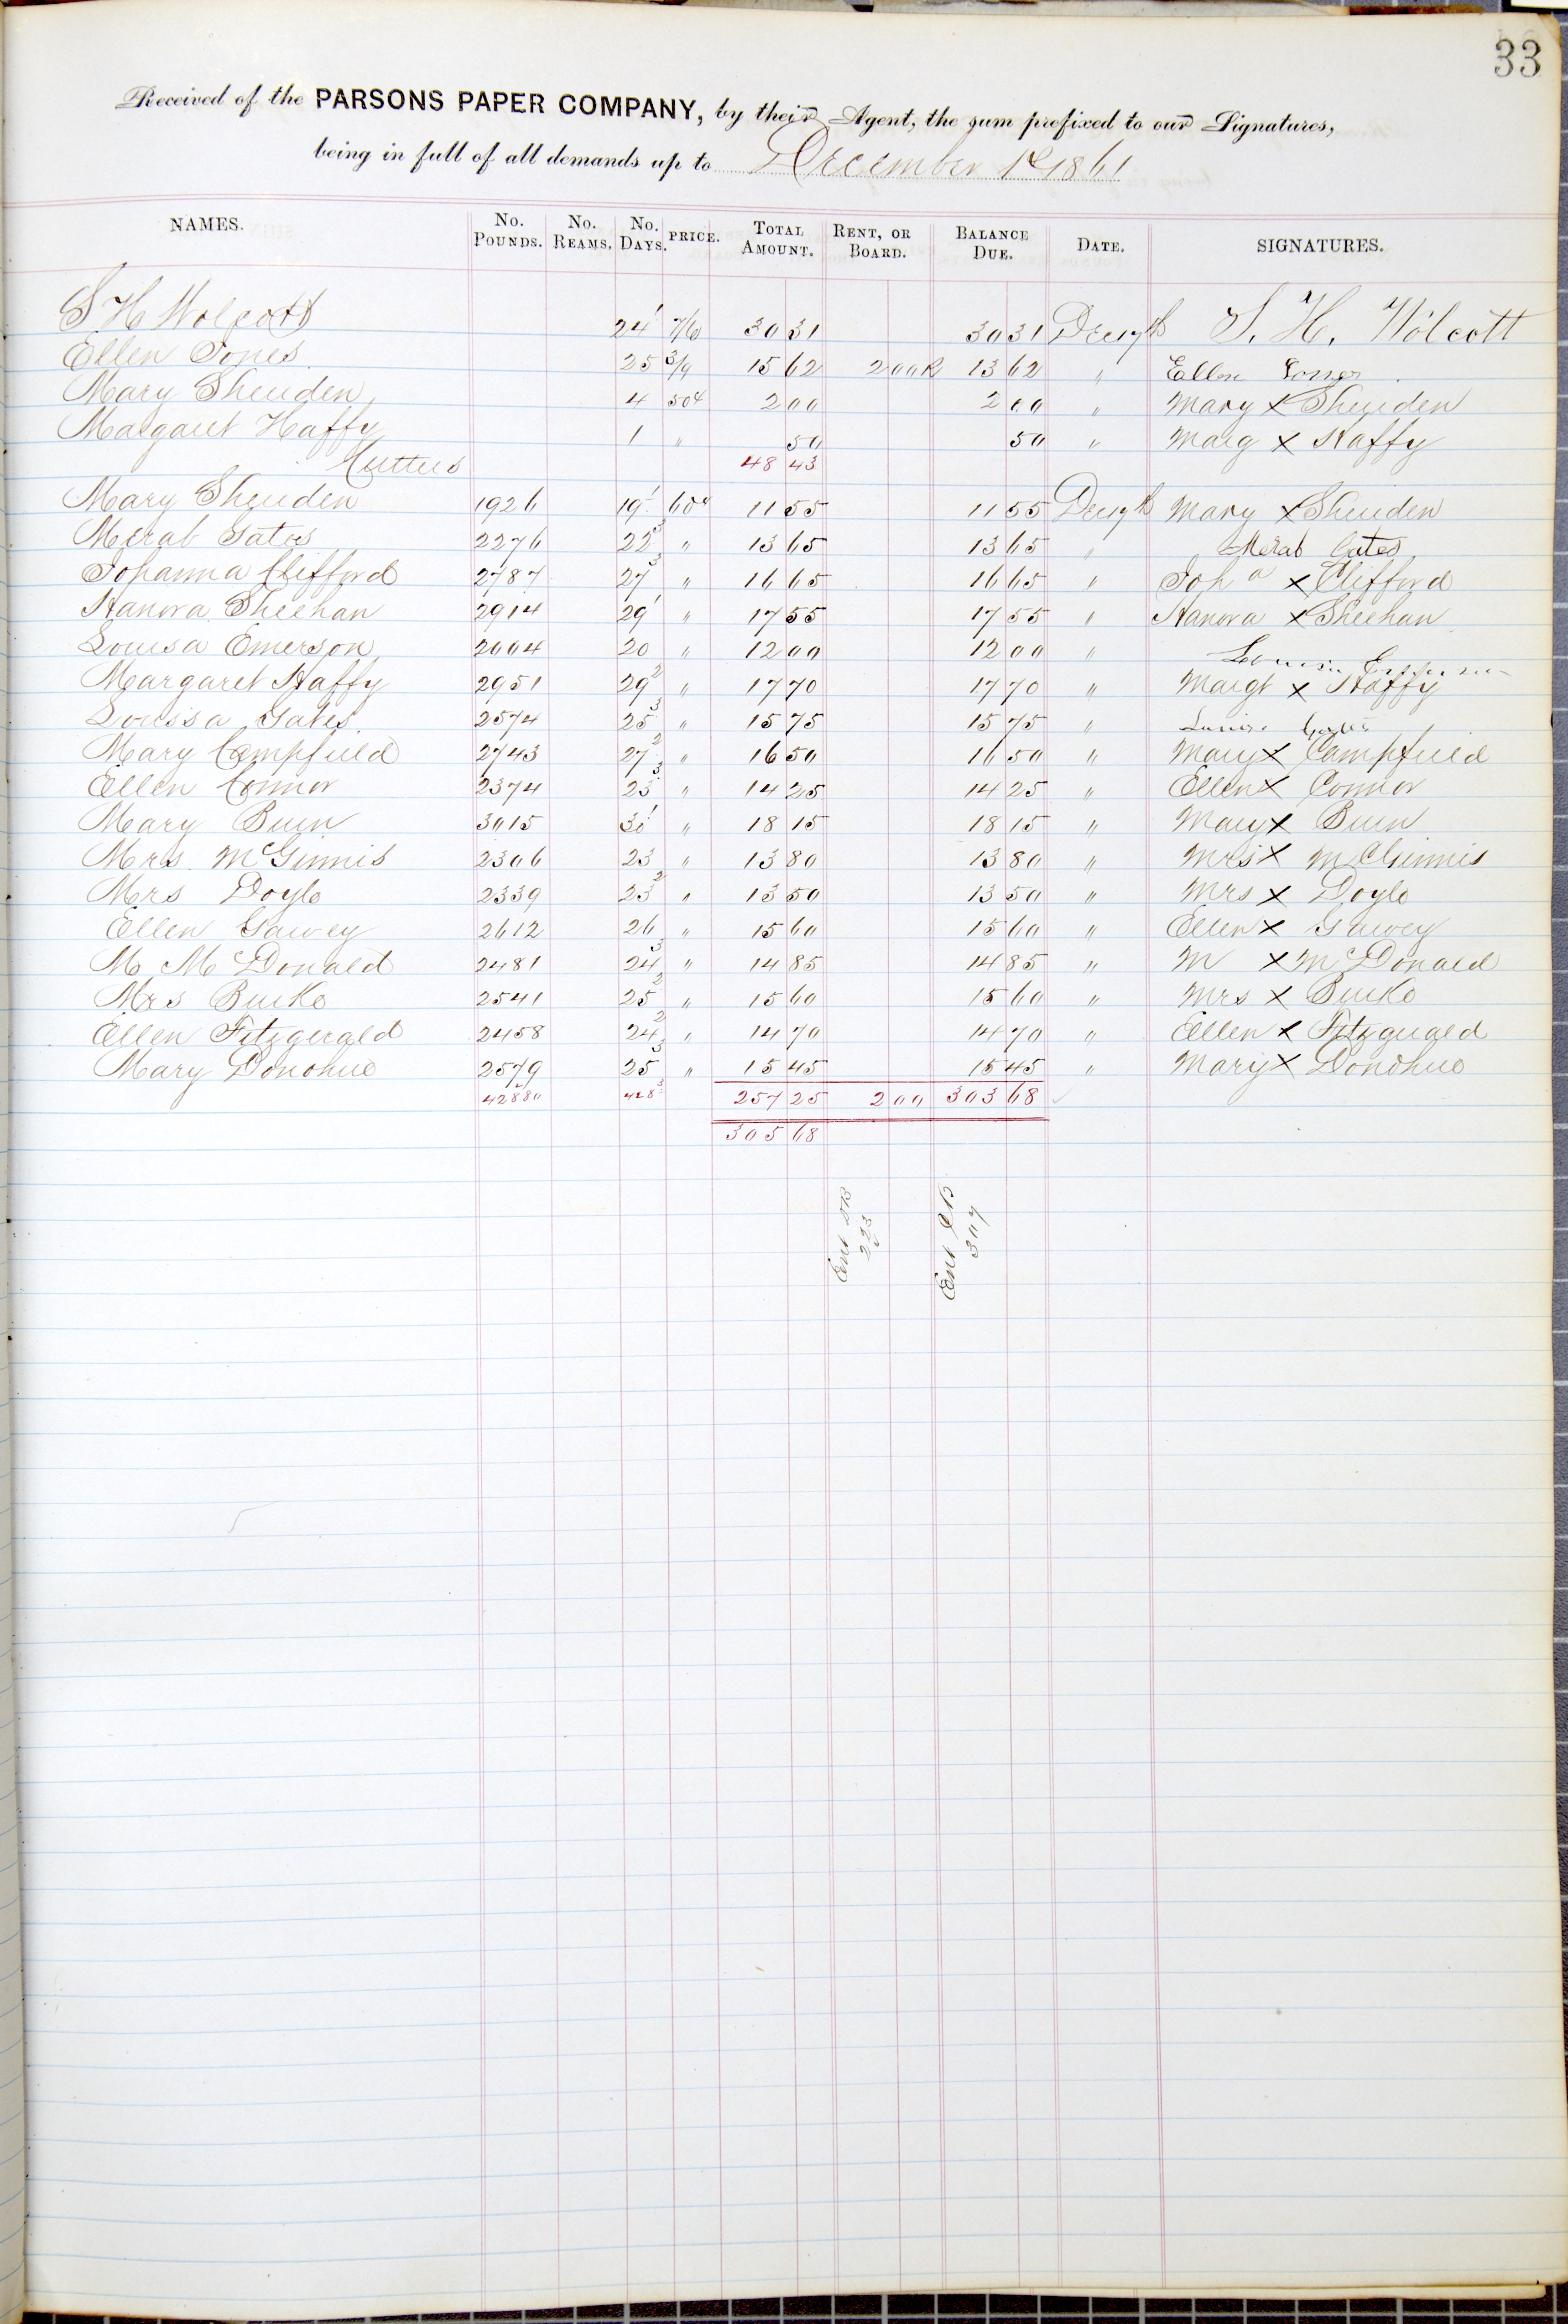 33
Received of the PARSONS PAPER COMPANY, by their Agent, the sum prefixed to our Signatures,
being in full of all demands up to December 1st 1861
NAMES. No. Pounds. No. Reams. No. Days. PRICE. Total Amount. Rent, or Board. Balance Due. Date. SIGNATURES.
S H Wolcott 24 1 7/6 30 31 30 31 Dec 17th S. H. Wolcott
Ellen Jones 25 3/9 15 62 2 00 R 13 62 " Ellen Jones
Mary Sheriden 4 50c 2 00 2 00 " Mary X Sheriden
Margaret Haffy 1 " 50 50 " Marg X Haffy
Cutters 48 43
Mary Sheriden 1926 19 1 60c 11 55 11 55 Dec 17th Mary X Sheriden
Merab Gates 2276 22 3 " 13 65 13 65 " Merab Gates
Johanna Clifford 2787 27 3 " 16 65 16 65 " Joha X Clifford
Hanora Sheehan 2914 29 1 " 17 55 17 55 " Hanora X Sheehan
Louisa Emerson 2004 20 " 12 00 12 00 " Louisa Emerson
Margaret Haffy 2951 29 2 " 17 70 17 70 " Margt X Haffy
Louisa Gates 2574 25 3 " 15 75 15 75 " Louisa Gates
Mary Campfield 2743 27 2 " 16 50 16 50 " Mary X Campfield
Ellen Connor 2374 23 3 " 14 25 14 25 " Ellen X Connor
Mary Buin 3015 30 1 " 18 15 18 15 " Mary X Buin
Mrs McGinnis 2306 23 " 13 80 13 80 " Mrs X McGinnis
Mrs Doyle 2339 23 2 " 13 50 13 50 " Mrs X Doyle
Ellen Garvey 2612 26 " 15 60 15 60 " Ellen X Garvey
M McDonald 2481 24 3 " 14 85 14 85 " M X McDonald
Mrs Burke 2541 25 2 " 15 60 15 60 " Mrs X Burke
Ellen Fitzgerald 2458 24 2 " 14 70 14 70 " Ellen X Fitzgerald
Mary Donohue 2579 25 3 " 15 45 15 45 " Mary X Donohue
42880 428 3 257 25 2 00 303 68
305 68
Ent DB 223
Ent CB 307